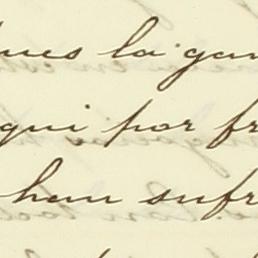 ues la gan
qui por fr
han sufr